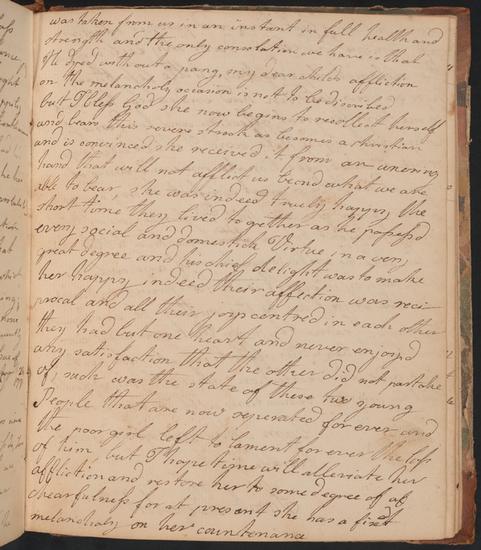 was taken from us in an instant in full health and
strength and the only consolation we have is that
He dyed without a pang, my dear childs affliction
on the melancholy occasion is not to be discribed
but I bless God she now begins to recollect herself
and bears this severe stroak as becomes a christian
and is convinced she received it from an unerring
hand that will not afflict us beond what we are
able to bear, she was indeed truly happy the
short time they lived to gether as he possess'd
every social and domestick Virtue in a very
great degree and his chief delight was to make
her happy indeed their affection was reci
procal and all their joys centred in each other
they had but one heart, and never enjoy'd
any satisfaction that the other did not partake
of, such was the state of these two young
People that are now seperated for ever and
the poor girl left to lament for ever the loss
of him, but I hope time will alleviate her
affliction and restore her to some degree of
chearfulness for at present she has a fixed
melancholy on her countenance